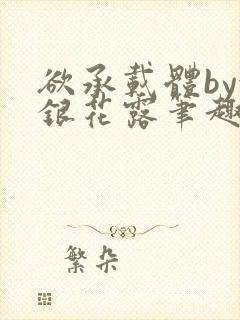 欲承載體by
銀花露筆趣
繁朵